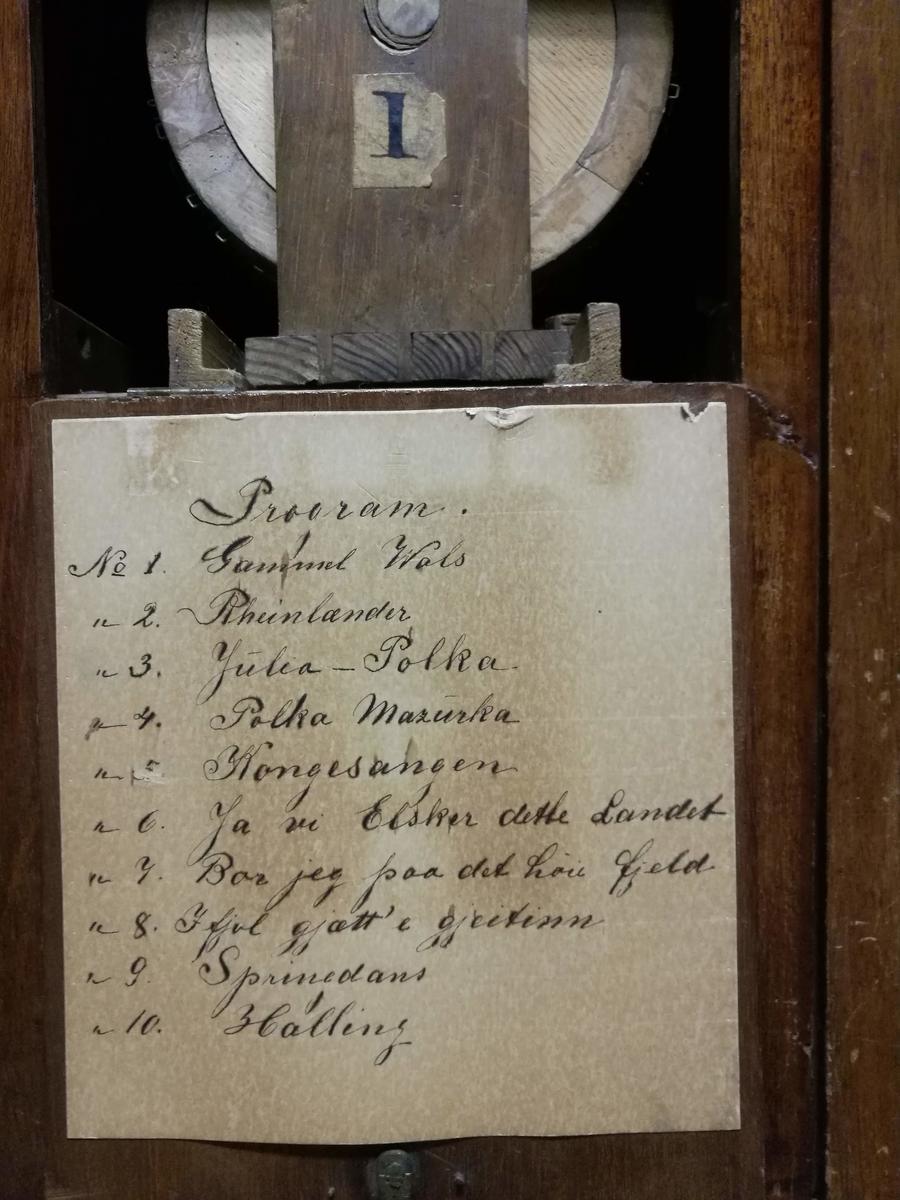 I
Program.
No 1. Gammel Vals
" 2. Rheinlænder
" 3. Julia - Polka.
" 4. Polka Mazurka
" 5. Kongesangen
" 6. Ja vi Elsker dette Landet
" 7. Bor jeg paa det höie fjeld
" 8. Ifjol gjætt'e gjeitinn
" 9. Springdans
" 10. Halling